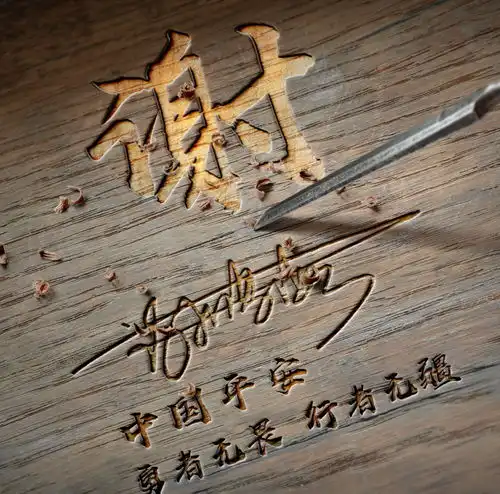 謝
中国平安
勇者无畏 行者无疆